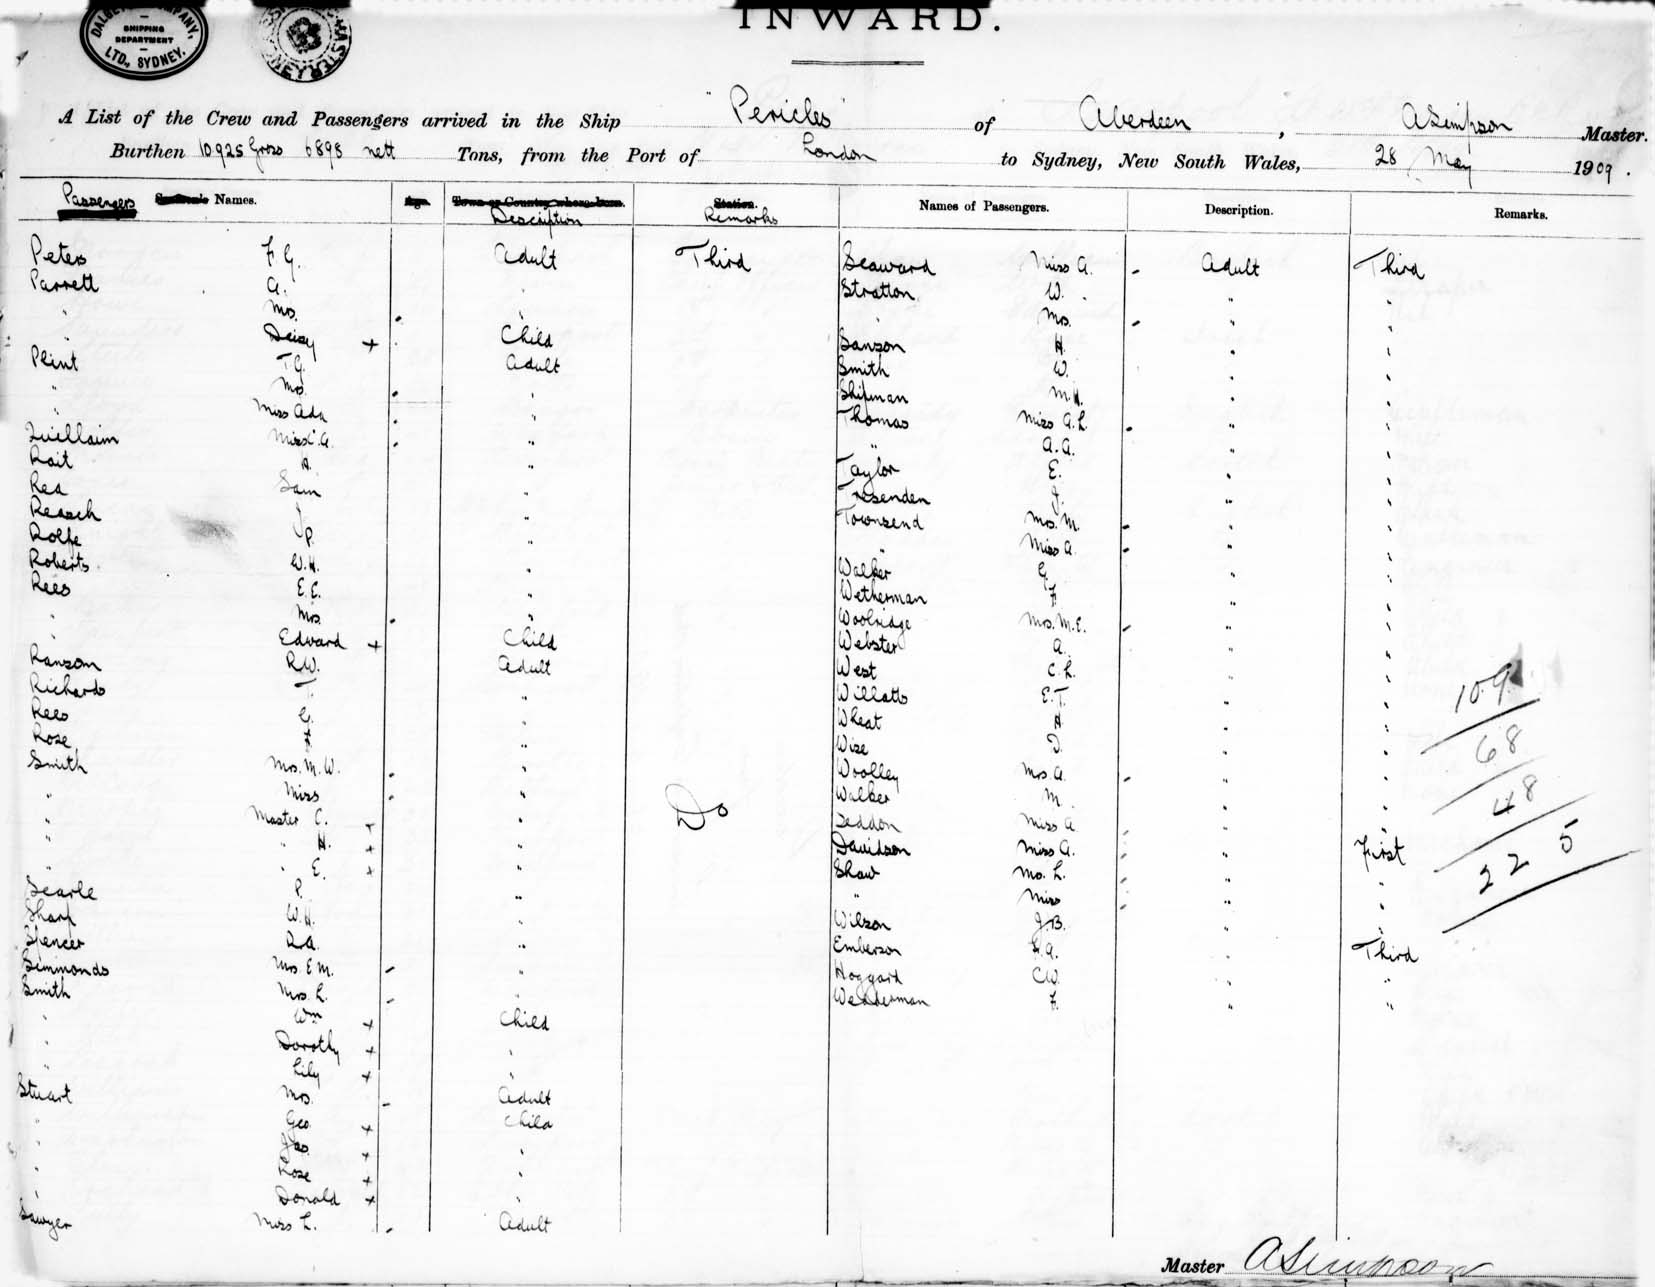 DALGETY & COMPANY,
SHIPPING
DEPARTMENT
LTD., SYDNEY.
INWARD.
A List of the Crew and Passengers arrived in the Ship "Pericles" of Aberdeen, A Simpson Master.
Burthen 10925 Gross 6898 nett Tons, from the Port of London to Sydney, New South Wales, 28 May 1909.
Passengers Names. Age. Town or Country where born. Description Station. Remarks
Peters F. G. Adult Third
Parrett A. "
" Mrs. "
" Daisy + Child
Plint T.G. Adult
" Mrs. "
" Miss Ada "
Miss A. "
Rait A. "
Rea Sam "
Reasch J. "
Rolfe P. "
Roberts. W.H. "
Rees E.E. "
" Mrs. "
" Edward + Child
Ranson R.W. Adult
Richards T. "
Rees G. "
Rose F. "
Smith Mrs. M. W. "
" Miss " Do
" Master C. + "
" " H. + "
" " E. + "
Searle P. "
Sharp W.H. "
Spencer R.A. "
Simmonds Mrs. E.M. "
Smith Mrs. L. "
" Wm + Child
" Dorothy + "
" Lily + "
Stuart Mrs. Adult
" Geo. + Child
" Jas. + "
" Rose + "
" Donald + "
Sawyer Miss L. Adult
Names of Passengers. Description. Remarks.
Seaward Miss A. Adult Third
Stratton W. " "
" Mrs. " "
Sanson H. " "
Smith W. " "
Shipman M.H. " "
Thomas Miss A.L. " "
" A.A. " "
Taylor E. " "
Tresenden J. " "
Townsend Mrs. M. " "
" Miss A. " "
Walker G. " "
Wetherman F. " "
Woolridge Mrs. M.E. " "
Webster A. " "
West C.L. " "
Willatts E.T. " "
Wheat A. " "
Wise D. " "
Woolley Mrs. A. " "
Walker M. " "
Seddon Miss A. " "
Davidson Miss A. " First
Shaw Mrs. L. " "
" Miss " "
Wilson J.B. " "
Emberson " Third
Hoggard C.W. " "
F. " "
109
68
48
225
Master A Simpson